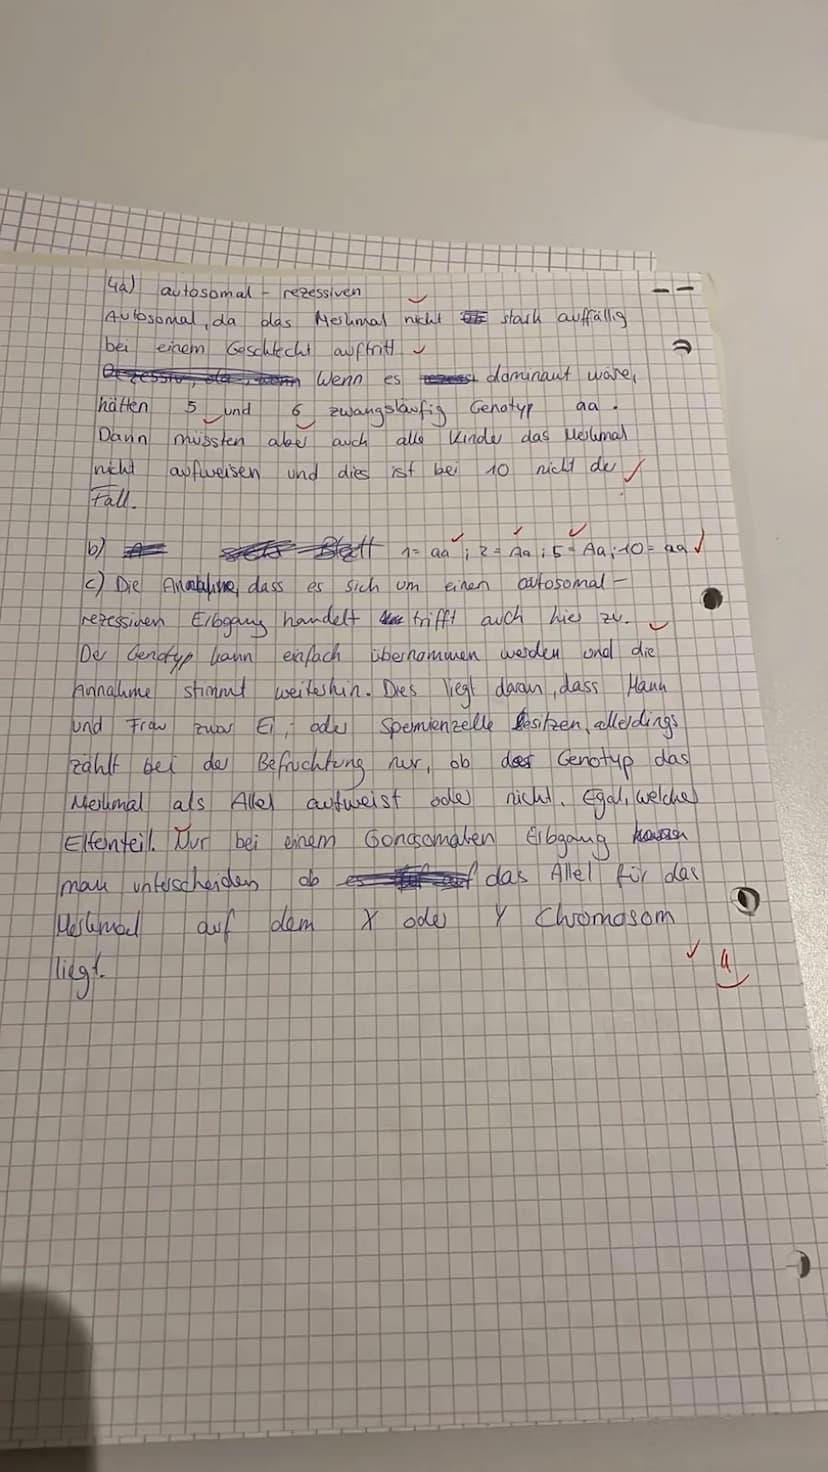 4a) autosomal - rezessiven
Autosomal, da das Merkmal nicht stark auffällig
bei einem Geschlecht auftritt
Wenn es dominant wäre,
hätten 5 und 6 zwangsläufig Genotyp aa.
Dann müssten aber auch alle Kinder das Merkmal
nicht aufweisen und dies ist bei 10 nicht der
Fall.
b) 1= aa ; 2= Aa ; 5= Aa ; 10= aa
c) Die Annahme, dass es sich um einen autosomal-
rezessiven Erbgang handelt trifft auch hier zu.
Der Genotyp kann einfach übernommen werden und die
Annahme stimmt weiterhin. Dies liegt daran, dass Mann
und Frau zwar Ei,- oder Spermienzelle besitzen, allerdings
zählt bei der Befruchtung nur, ob der Genotyp das
Merkmal als Allel aufweist oder nicht. Egal, welcher
Elternteil. Nur bei einem Gonosomalen Erbgang
man unterscheiden ob das Allel für das
Merkmal auf dem X oder Y Chromosom
liegt.
4